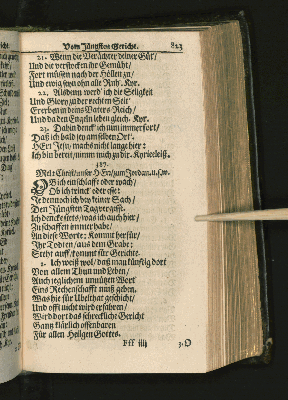 Vom Jüngsten Gericht. 823
21. Wenn die Verächter deiner Güt/
Und die verstocken ihr Gemüht/
Fort müssen nach der Höllen zu/
Und ewig seyn ohn alle Ruh. Kyr.
22. Alsdenn werd' ich die Seligkeit
Und Glory zu der rechten Seit'
Ererben in deins Vaters Reich/
Und da den Engeln leben gleich. Kyr.
23. Dahin denck' ich nun immerfort/
Daß ich bald sey am selben Ort'.
HErr JEsu/ machs nicht lange hier:
Ich bin bereit/ nimm mich zu dir. Kyrieleiß.
487.
Mel: Christ/ unser HErr/ zum Jordan. u.s.w.
OB ich entschlaff' oder wach/
Ob ich trinck' oder esse:
Je dennoch ich bey keiner Sach/
Den Jüngsten Tag vergesse.
Ich dencke stets/ was ich auch hier/
Zu schaffen immer habe/
An diese Worte: Kommt herfür/
Ihr Todten/ aus dem Grabe:
Steht auff/ kommt für Gerichte.
2. Ich weiß wol/ daß man künfftig dort
Von allem Thun und Leben/
Auch jeglichem unnützen Wort
Gins Rechenschafft muß geben.
Was hie für Ubelthat geschicht/
Und offt nicht wird erfahren/
Wird dort das schreckliche Gericht
Gantz klärlich offenbaren
Für allen Heilgen Gottes.
Fff iiij 3. O